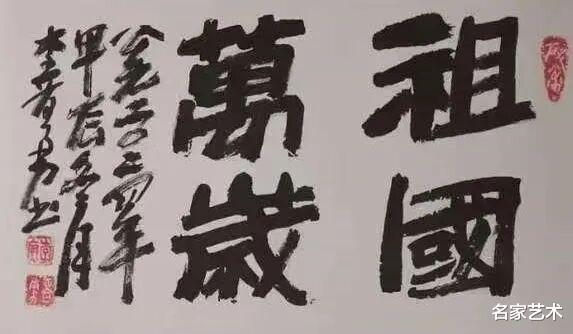 祖國
萬歲
公元二〇二四年
甲辰冬月
李書
名家艺术